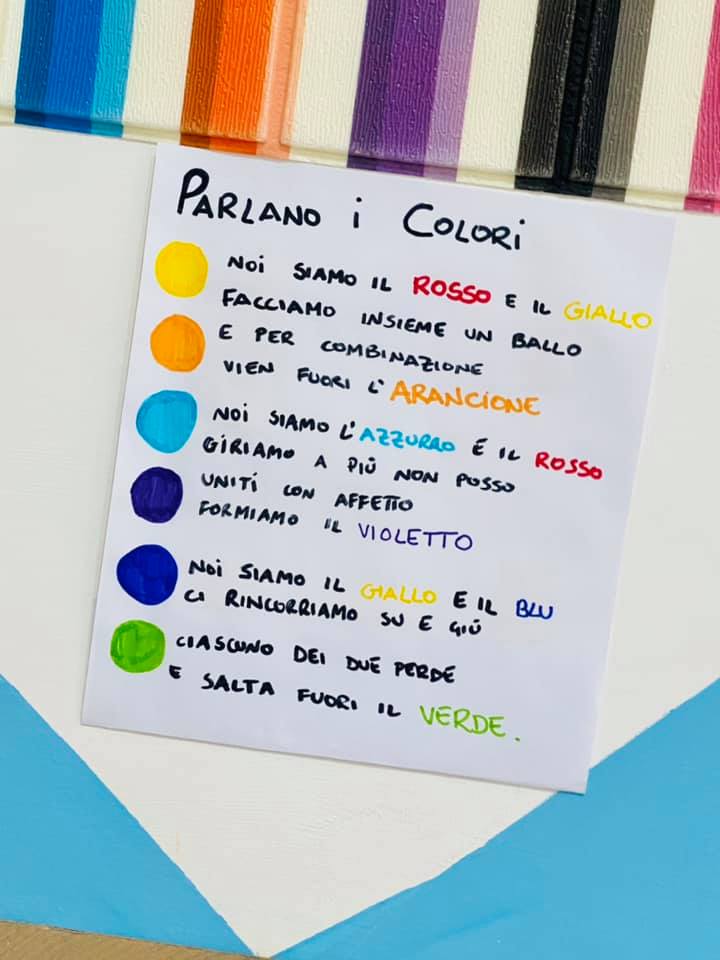 PARLANO i COLORi
NOi SiAMO IL ROSSO E IL GIALLO
FACCIAMO INSIEME UN BALLO
E PER COMBINAZIONE
VIEN FUORI L'ARANCIONE
NOi SIAMO L'AZZURRO E IL ROSSO
GIRIAMO A PIÙ NON POSSO
UNITI CON AFFETTO
FORMIAMO IL VIOLETTO
NOi SIAMO IL GIALLO E IL BLU
CI RINCORRIAMO SU E GIÚ
CIASCUNO DEI DUE PERDE
E SALTA FUORI IL VERDE.